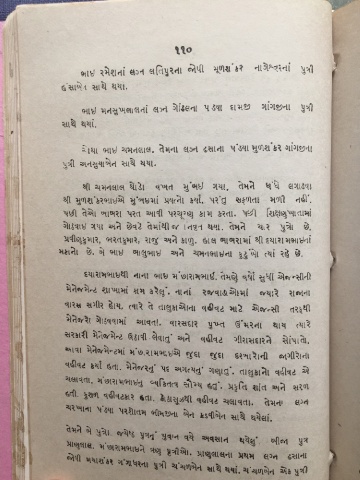 ૧૧૦
ભાઇ રમેશનાં લગ્ન લતિપુરના જોષી મૂળશંકર નાગેશ્વરનાં પુત્રી
હંસાબેન સાથે થયા.
ભાઇ મનસુખલાલનાં લગ્ન ગોંડલના પંડયા દામજી ગાંગજીના પુત્રી
સાથે થયાં.
ચોથા ભાઇ ચમનલાલ. તેમના લગ્ન હસાના પંડયા મુળશંકર ગાંગજીના
પુત્રી અનસુયાબેન સાથે થયા.
શ્રી ચમનલાલ થોડો વખત મુંબઇ ગયા. તેમને ધંધે લગાડવા
શ્રી મુળશંકરભાઇએ મુંબઇમાં પ્રયત્નો કર્યા, પરંતુ સફળતા મળી નહીં.
પછી તેઓ ખાખરા પરત આવી પરચુરણ કામ કરતા. પછી શિક્ષણખાતામાં
જોડાઇ ગયા અને છેવટે તેમાંથી જ નિવૃત થયા. તેમને ચાર પુત્રો છે.
પ્રવીણકુમાર, ભરતકુમાર, રાજુ અને કાળુ. હાલ ખાખરામાં શ્રી દયારામભાઇનાં
મકાનો છે. બે ભાઇ ભાનુભાઇ અને ચમનભાઇના કુટુંબો ત્યાં રહે છે.
દયારામભાઇથી નાના ભાઇ મંછારામભાઇ. તેમણે વર્ષો સુધી એજન્સીની
મેનેજમેન્ટ શાખામાં કામ કરેલું. નાનાં રજવાડાઓમાં જ્યારે રાજાના
વારસ સગીર હોય, ત્યારે તે તાલુકાઓના વહીવટ માટે એજન્સી તરફથી
મેનેજરો ગોઠવવામાં આવતાં. વારસદાર પુખ્ત ઉંમરના થાય ત્યારે
સરકારી મેનેજમેન્ટ ઉઠાવી લેવાતું અને વહીવટ ગીરાસદારને સોંપાતો.
આવા મેનેજમેન્ટમાં મંછારામભાઇએ જુદા જુદા દરબારોની જાગીરોના
વહીવટ કર્યા હતા. મેનેજરનું પદ અગત્યનું ગણાતું. તાલુકાનો વહીવટ એ
ચલાવતા. મંછારામભાઇનું વ્યક્તિત્વ સૌમ્ય હતું. પ્રકૃતિ શાંત અને સરળ
હતી. કુશળ વહીવટકાર હતા. મીઠાશથી વહીવટ ચલાવતા. તેમના લગ્ન
ચરખાના પંડયા પરશોતમ ભીમજીના બેન કડવીબેન સાથે થયેલાં.
તેમને બે પુત્રો. જયેષ્ઠ પુત્રનું યુવાન વયે અવસાન થયેલું. બીજા પુત્ર
પ્રાણલાલ. મંછારામભાઇને ત્રણ પુત્રીઓ. પ્રાણલાલના પ્રથમ લગ્ન હસાના
જોષી મયાશંકર ગંગાધરના પુત્રી ચંચળબેન સાથે થયાં. ચંચળબેન એક પુત્રી